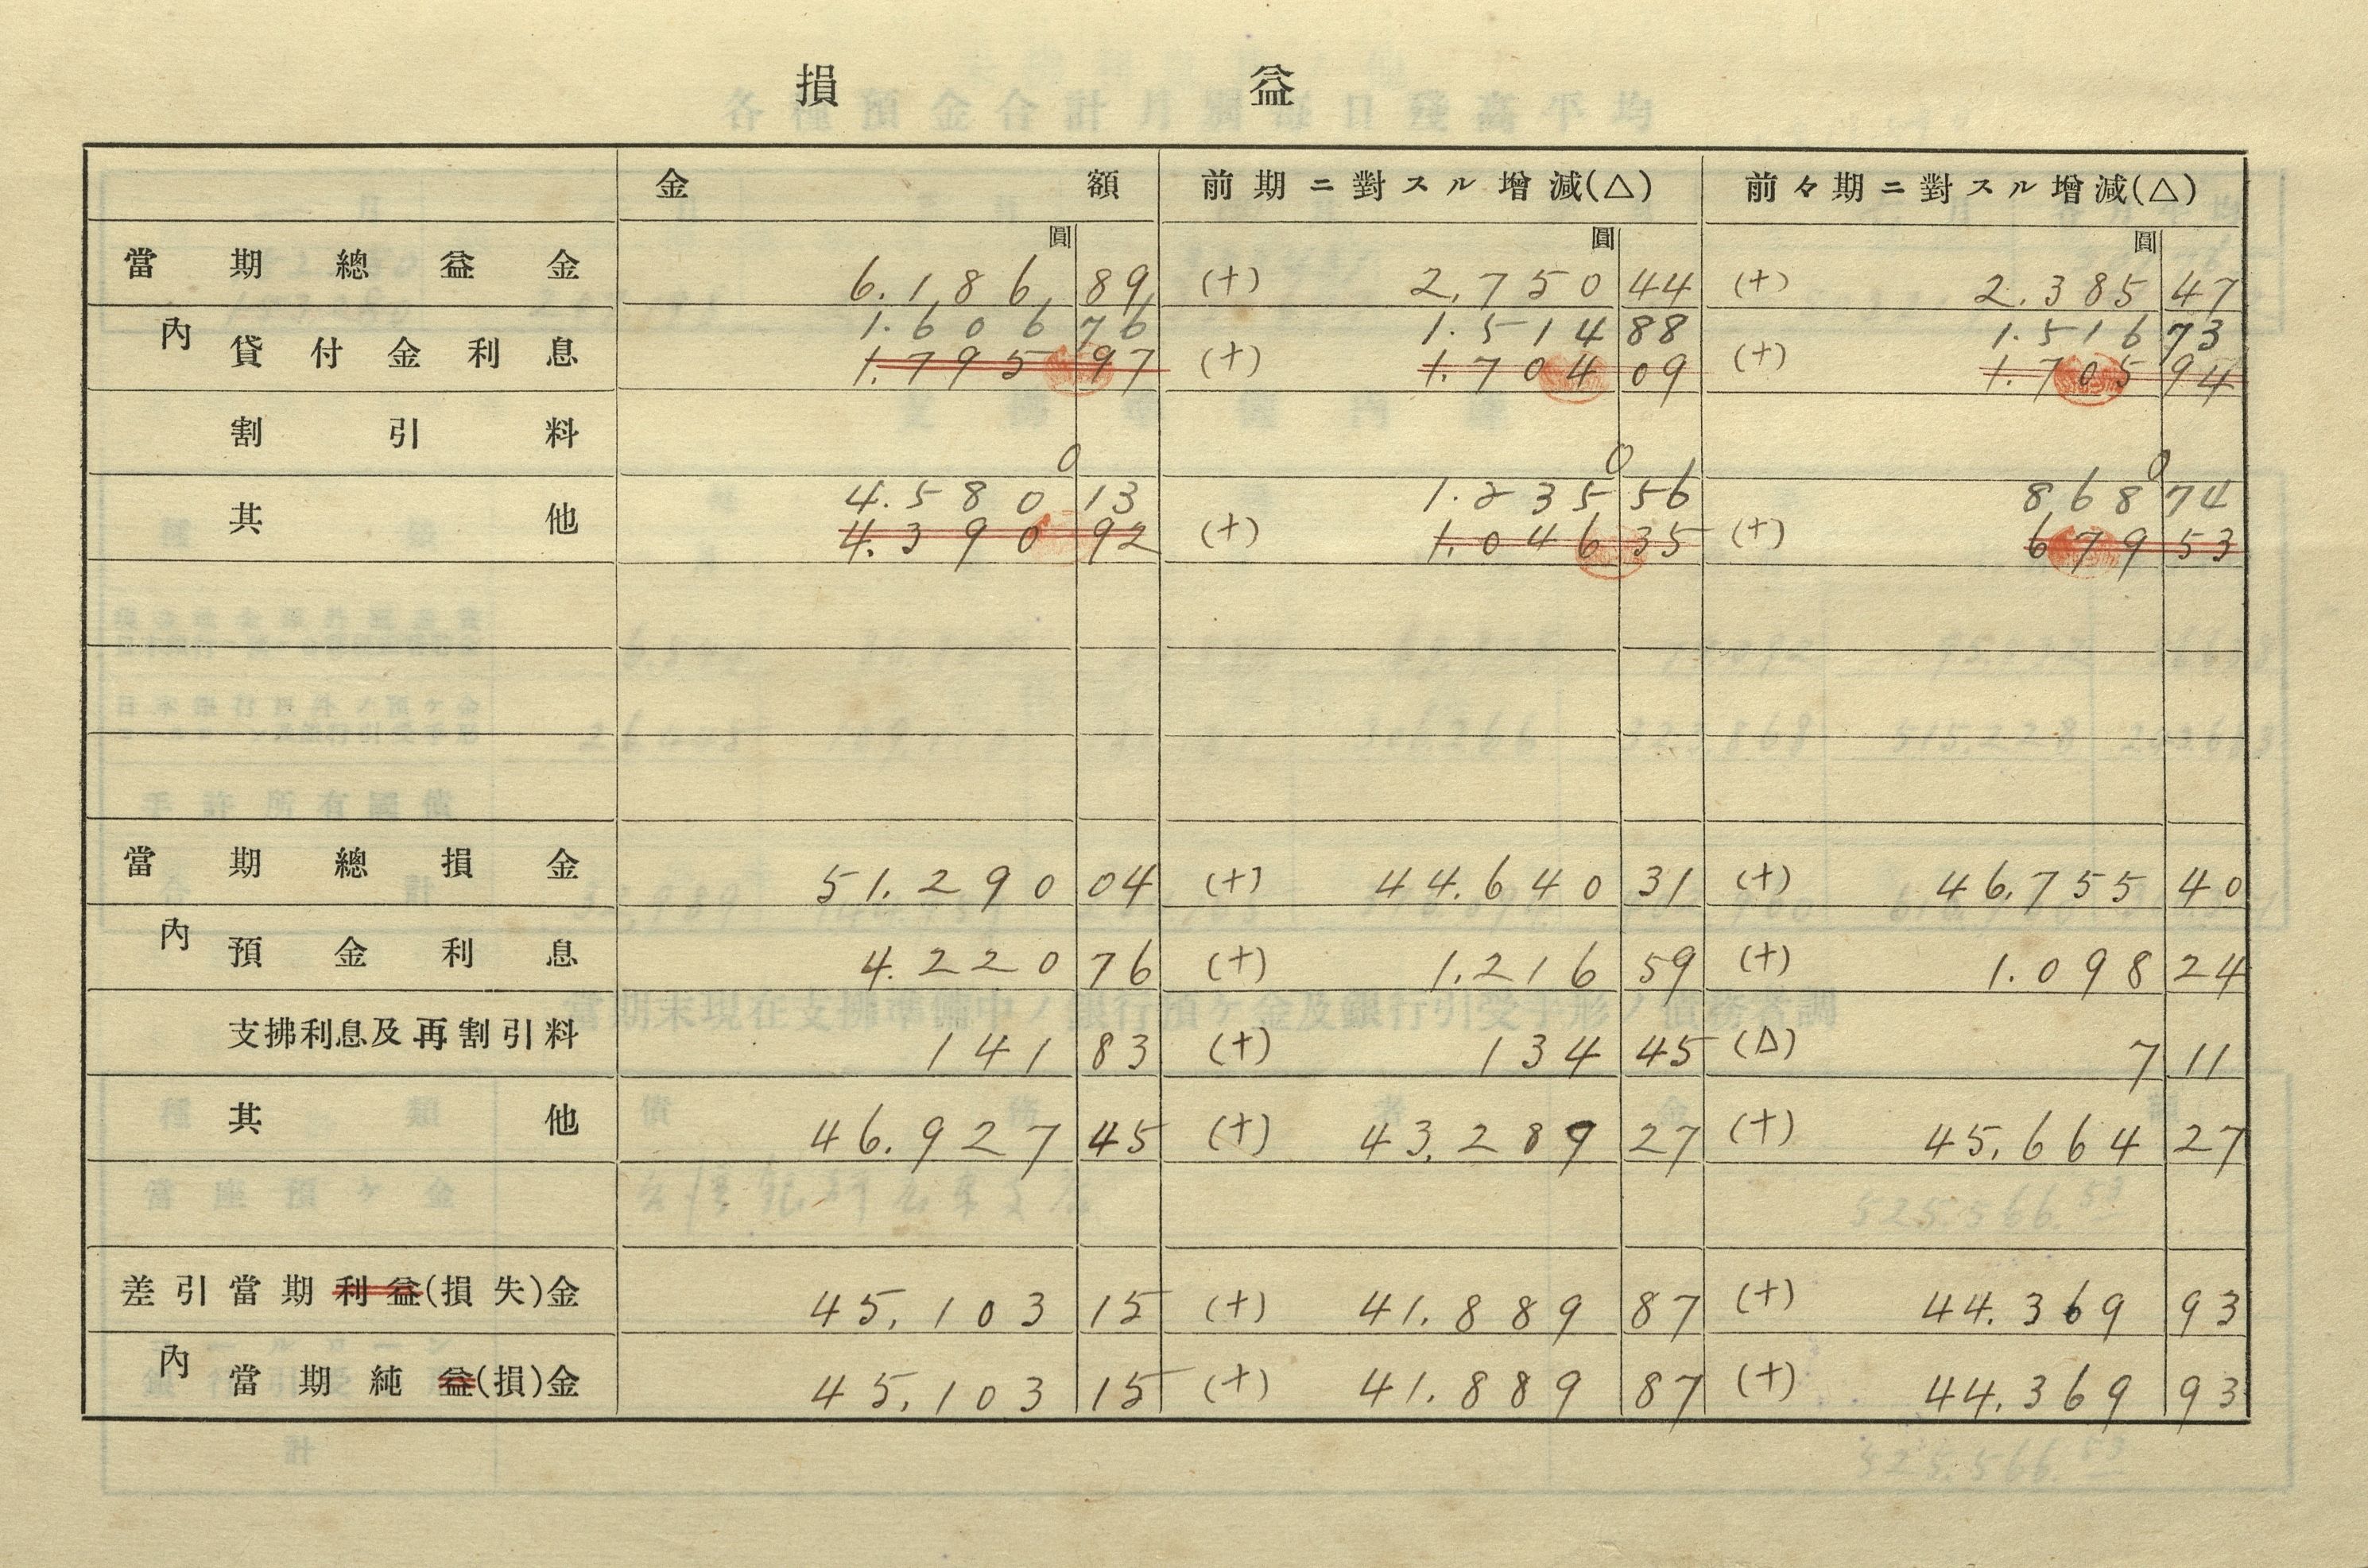 損益
金額 前期ニ對スル增減(△) 前々期ニ對スル增減(△)
圓 圓 圓
當期總益金 6.186 89 (+) 2.750 44 (+) 2.385 47
1.606 76 1.514 88 1.516 73
內 貸付金利息 1.795 97 (+) 1.704 09 (+) 1.705 94
割引料 0 0 0
4.580 13 1.235 56 868 74
其他 4.390 92 (+) 1.046 35 (+) 679 53
當期總損金 51.290 04 (+) 44.640 31 (+) 46.755 40
內 預金利息 4.220 76 (+) 1.216 59 (+) 1.098 24
支拂利息及再割引料 141 83 (+) 134 45 (△) 7 11
其他 46.927 45 (+) 43.289 27 (+) 45.664 27
差引當期利益(損失)金 45.103 15 (+) 41.889 87 (+) 44.369 93
內 當期純益(損)金 45.103 15 (+) 41.889 87 (+) 44.369 93